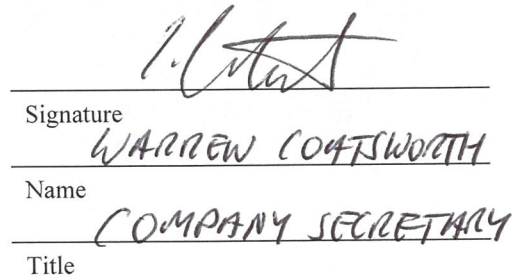 Signature
WARREN COATSWORTH
Name
COMPANY SECRETARY
Title